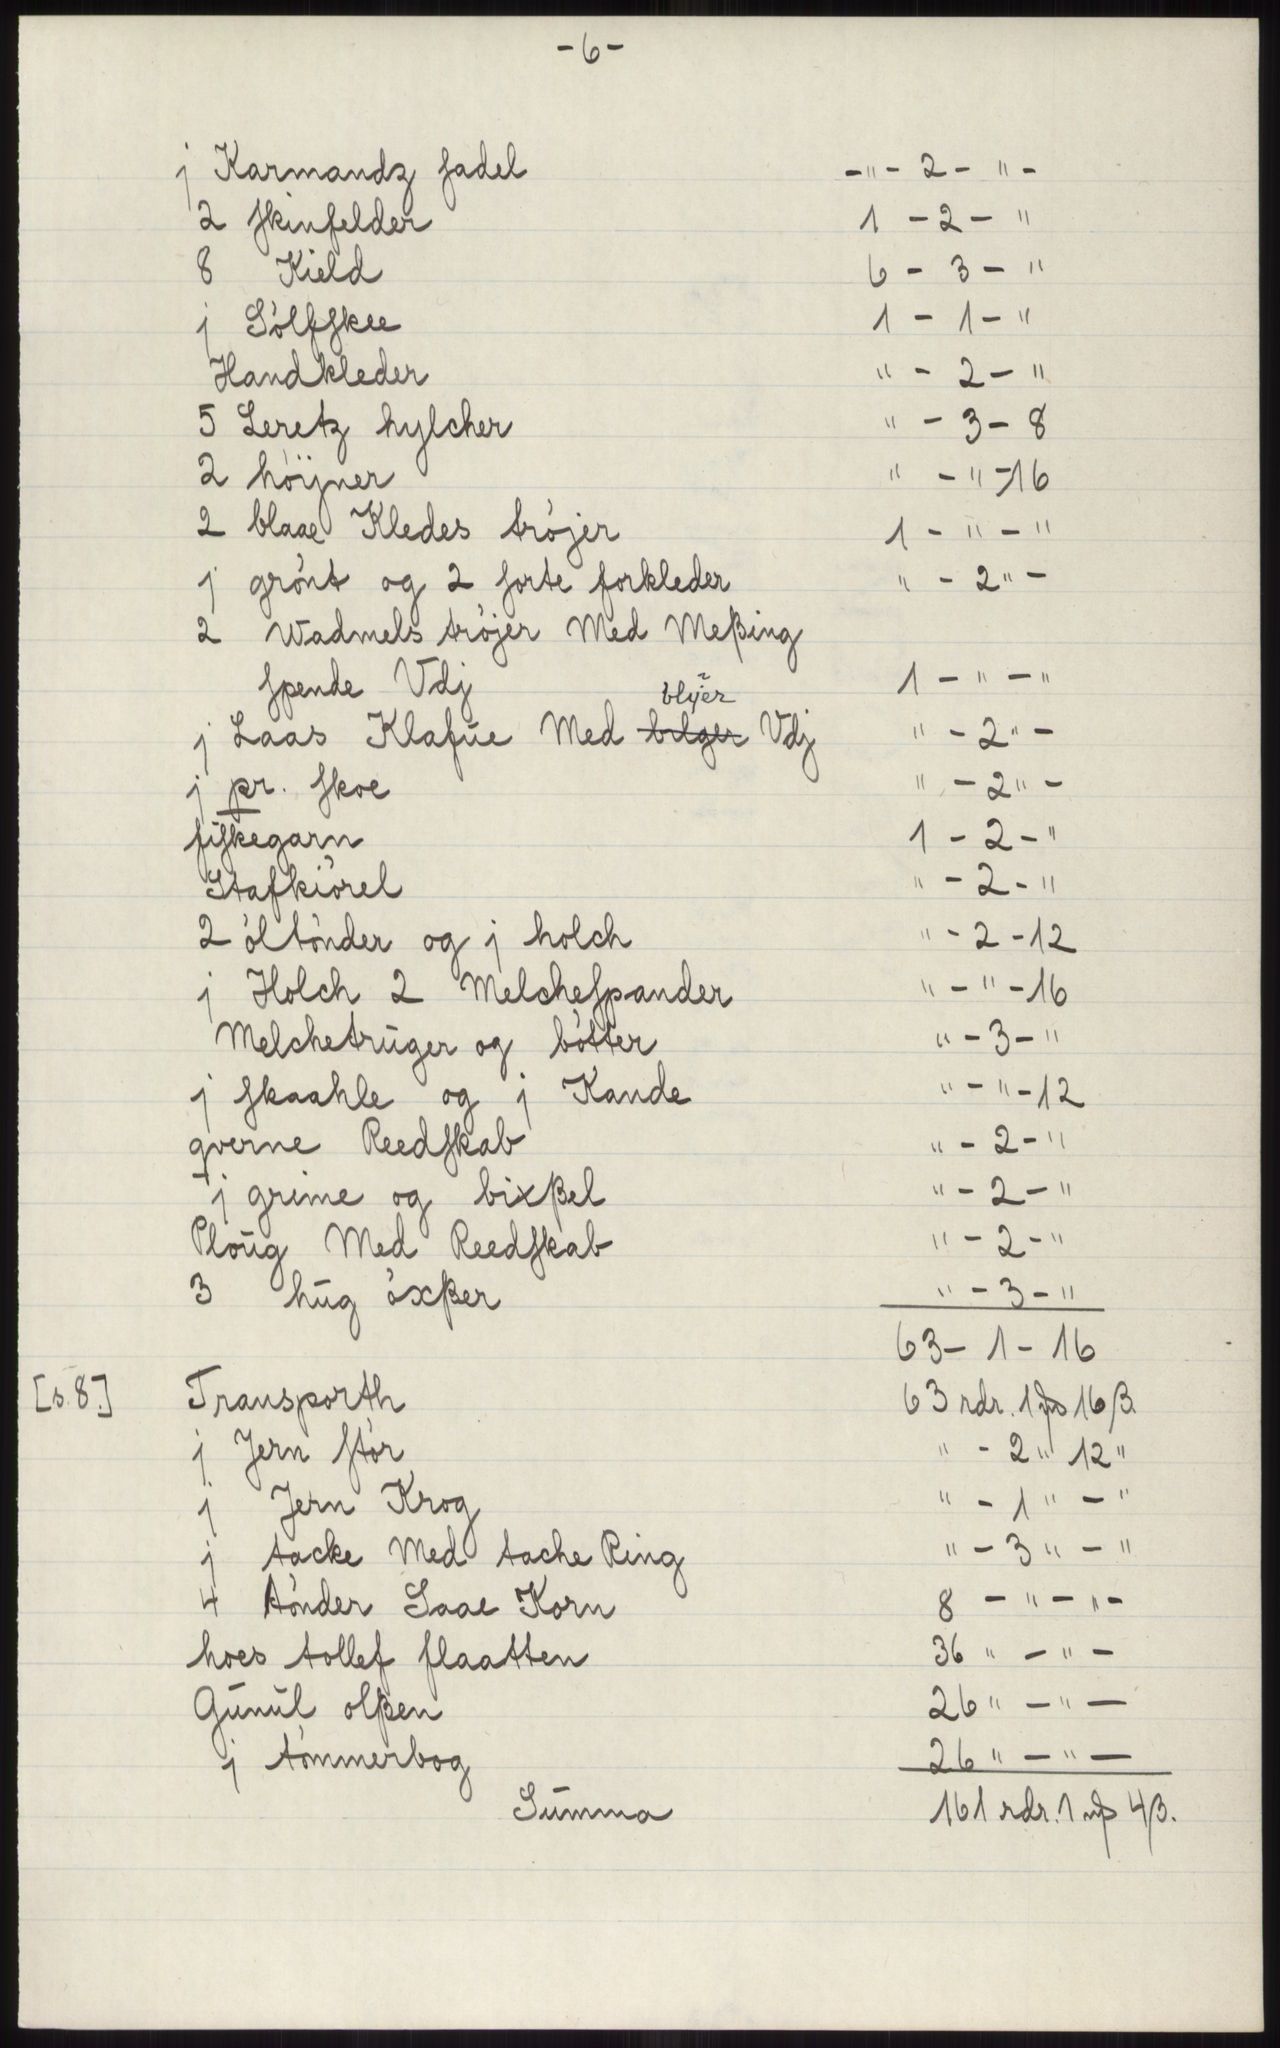 - 6 -
j Karmandz sadel - " - 2 - " -
2 skinfelder 1 - 2 - "
8 Kield 6 - 3 - "
j Sølfskee 1 - 1 - "
Handkleder " - 2 - "
5 Leretz hylcher " - 3 - 8
2 høijner " - " - 16
2 blaae Kledes trøjer 1 - " - "
j grønt og 2 sorte forkleder " - 2 " -
2 Wadmels trøjer Med Meßing
spende Vdj 1 - " - "
blÿer
j Laas Klafue Med belger Vdj " - 2 " -
j pr. skoe " - 2 " -
fiskegarn 1 - 2 - "
Stafkiørel " - 2 - "
2 øltønder og j holch " - 2 - 12
j Holch 2 Melchespander " - " - 16
Melchetrŭger og bøtter " - 3 - "
j skaahle og j Kande " - " - 12
qverne Reedskab " - 2 - "
j grime og bixßel " - 2 - "
Ploŭg Med Reedskab " - 2 - "
3 hŭg øxßer " - 3 - "
63 - 1 - 16
[s. 8.] Transporth 63 rdr. 1 ß 16 β.
j Jern stør " - 2 " 12 "
j Jern Krog " - 1 " - "
j tacke Med tache Ring " - 3 " - "
4 tønder Saae Korn 8 - " - " -
hoes tollef flaatten 36 " - " -
Gŭnŭl olßen 26 " - " -
j tømmerbog 26 " - " -
Sŭmma 161 rdr. 1 4 β.